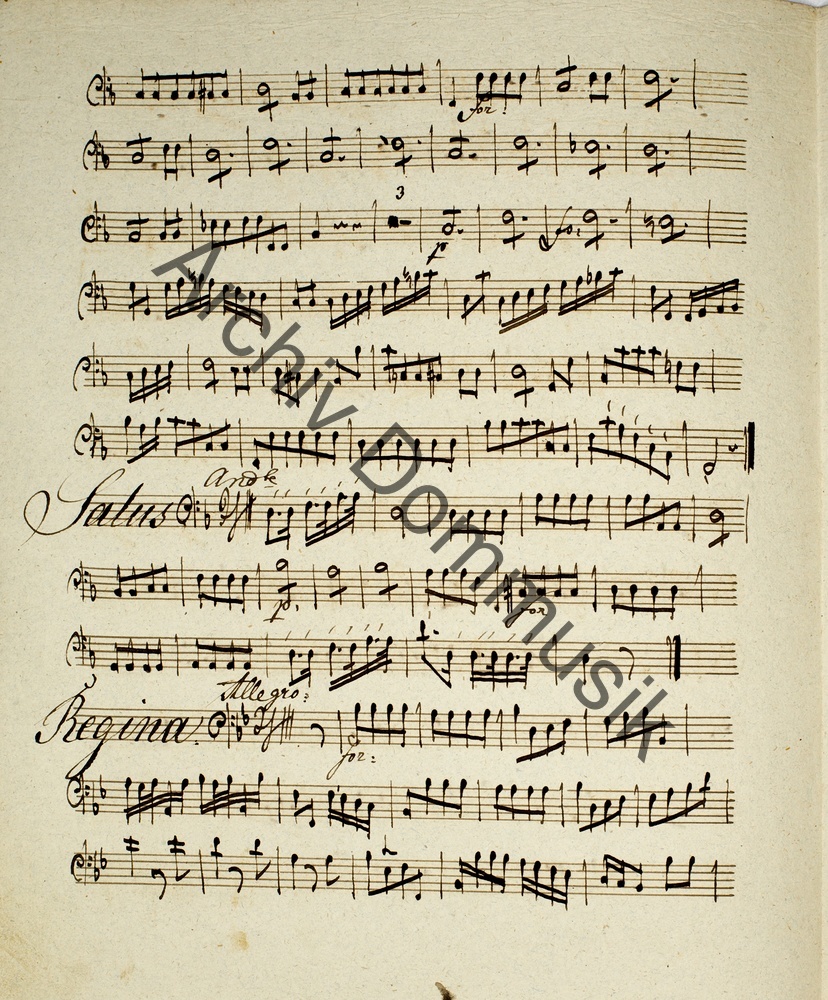 for:
3
p
for:
Andte
Salus
p.
for
Allegro:
Regina.
for:
Archiv Dommusik